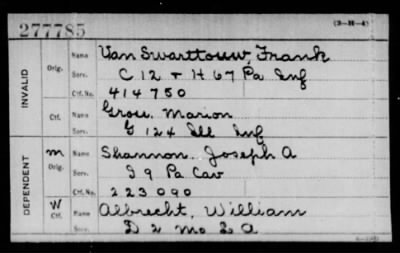 277785
(3-H-4)
INVALID
Orig. Name Van Swarttouw, Frank
Serv. C 12 & H 67 Pa Inf
Ctf. No. 414750
Ctf. Name Grou. Marion
G 124 Ill Inf
DEPENDENT
m Orig. Name Shannon. Joseph A
Serv. I 9 Pa Cav
Ctf. No. 223090
W Ctf. Name Albrecht, William
Serv. D 2 Mo L A